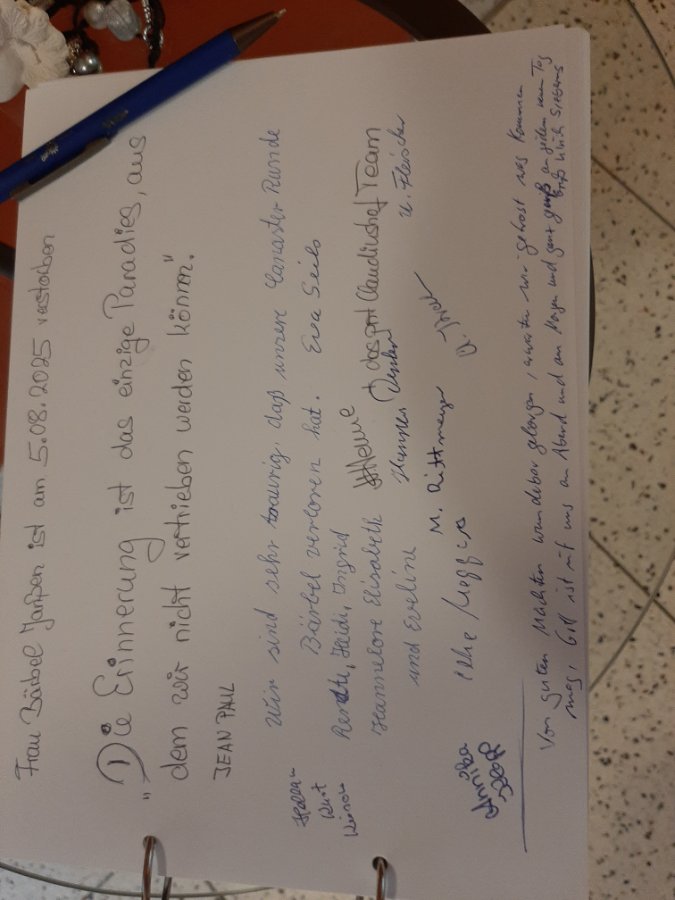 Frau Bärbel Janßen ist am 5.08.2025 verstorben
"Die Erinnerung ist das einzige Paradies, aus
dem wir nicht vertrieben werden können".
JEAN PAUL
Wir sind sehr traurig, daß unsere Canaster-Runde
Bärbel verloren hat. Eva Seils
Renate, Heidi, Ingrid
Hannelore Elisabeth
und Eveline
das ges. Claudiushof Team
U. Fleischer
M. Rittmeyer
Annika
Von guten Mächten wunderbar geborgen, erwarten wir getrost was kommen
mag, Gott ist mit uns am Abend und am Morgen und ganz gewiß an jedem neuen Tag